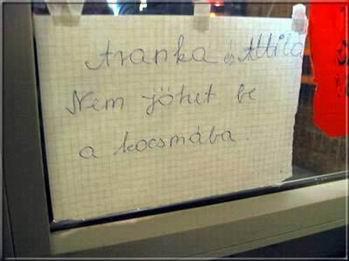 Aranka és Attila
Nem jöhet be
a kocsmába.